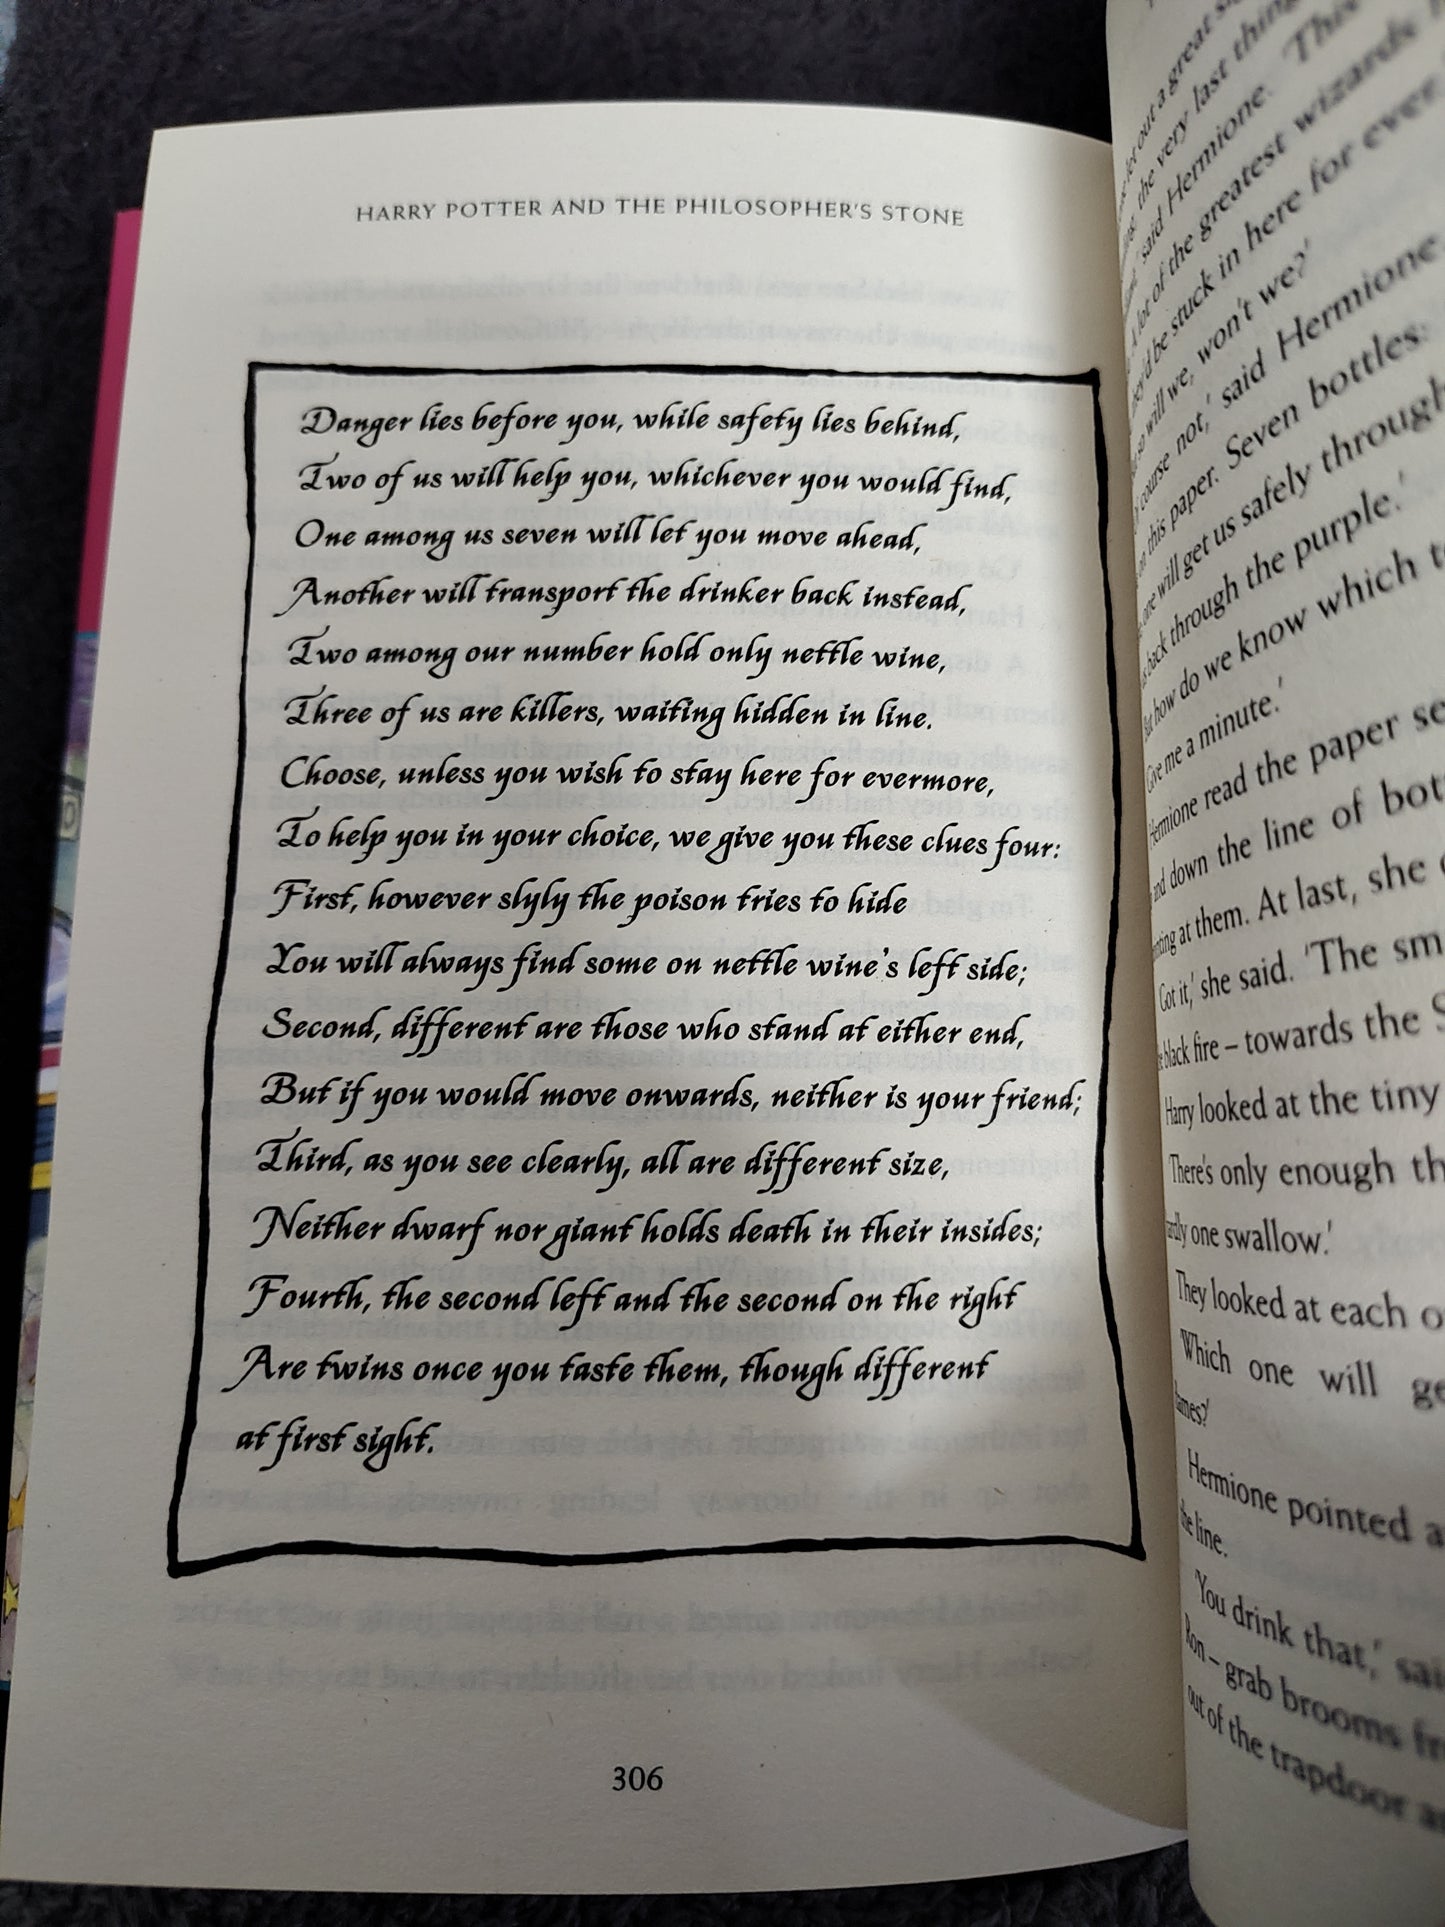 HARRY POTTER AND THE PHILOSOPHER'S STONE
Danger lies before you, while safety lies behind,
Two of us will help you, whichever you would find,
One among us seven will let you move ahead,
Another will transport the drinker back instead,
Two among our number hold only nettle wine,
Three of us are killers, waiting hidden in line.
Choose, unless you wish to stay here for evermore,
To help you in your choice, we give you these clues four:
First, however slyly the poison tries to hide
You will always find some on nettle wine's left side;
Second, different are those who stand at either end,
But if you would move onwards, neither is your friend;
Third, as you see clearly, all are different size,
Neither dwarf nor giant holds death in their insides;
Fourth, the second left and the second on the right
Are twins once you taste them, though different
at first sight.
306
let out a great
the very last thing
said Hermione. This
A lot of the greatest wizards
be stuck in here for ever
so will we, won't we?'
course not,' said Hermione
on this paper. Seven bottles:
one will get us safely through
back through the purple.'
But how do we know which to
Give me a minute.'
Hermione read the paper
and down the line of
at them. At last, she
Got it,' she said. 'The
black fire – towards the
Harry looked at the tiny
There's only enough
one swallow.'
They looked at each
'Which one will
flames?'
Hermione pointed
the line.
'You drink that,'
Ron – grab brooms
out of the trapdoor